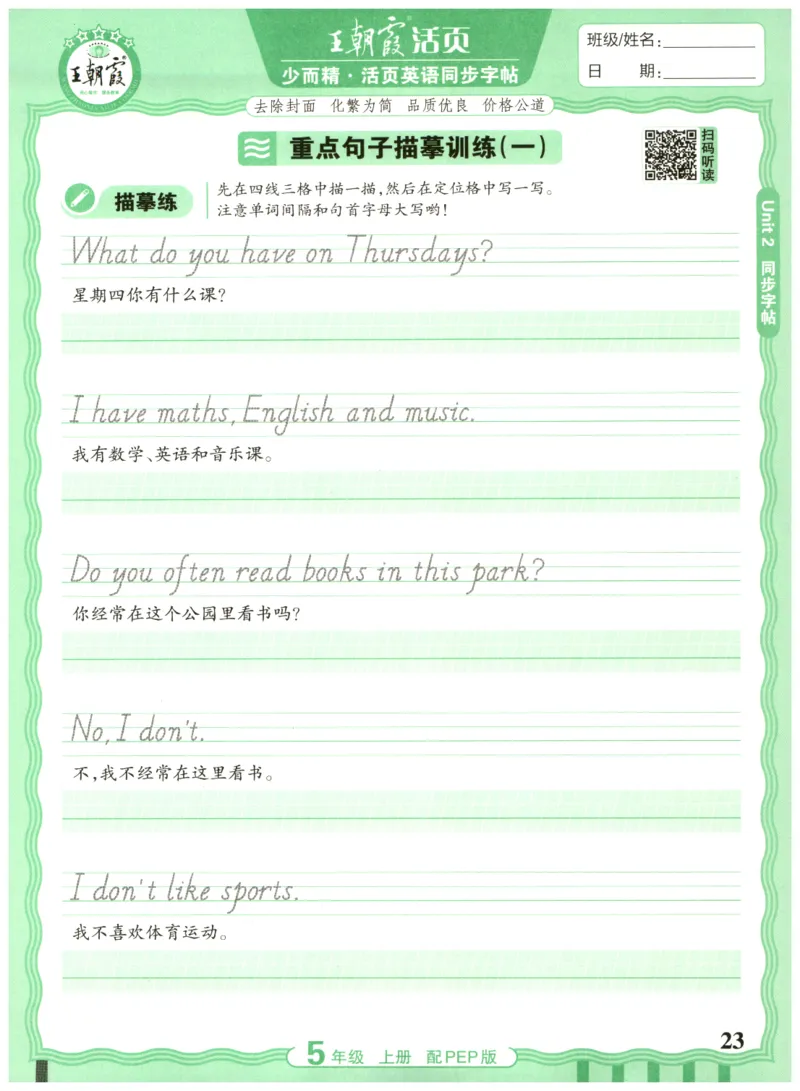 王朝霞活页
班级/姓名:
少而精·活页英语同步字帖
日 期:
王朝霞
去除封面 化繁为简 品质优良 价格公道
重点句子描摹训练(一)
扫码听读
描摹练
先在四线三格中描一描,然后在定位格中写一写。
注意单词间隔和句首字母大写哟!
Unit 2 同步字帖
What do you have on Thursdays?
星期四你有什么课?
I have maths, English and music.
我有数学、英语和音乐课。
Do you often read books in this park?
你经常在这个公园里看书吗?
No, I don't.
不,我不经常在这里看书。
I don't like sports.
我不喜欢体育运动。
23
5年级 上册 配PEP版